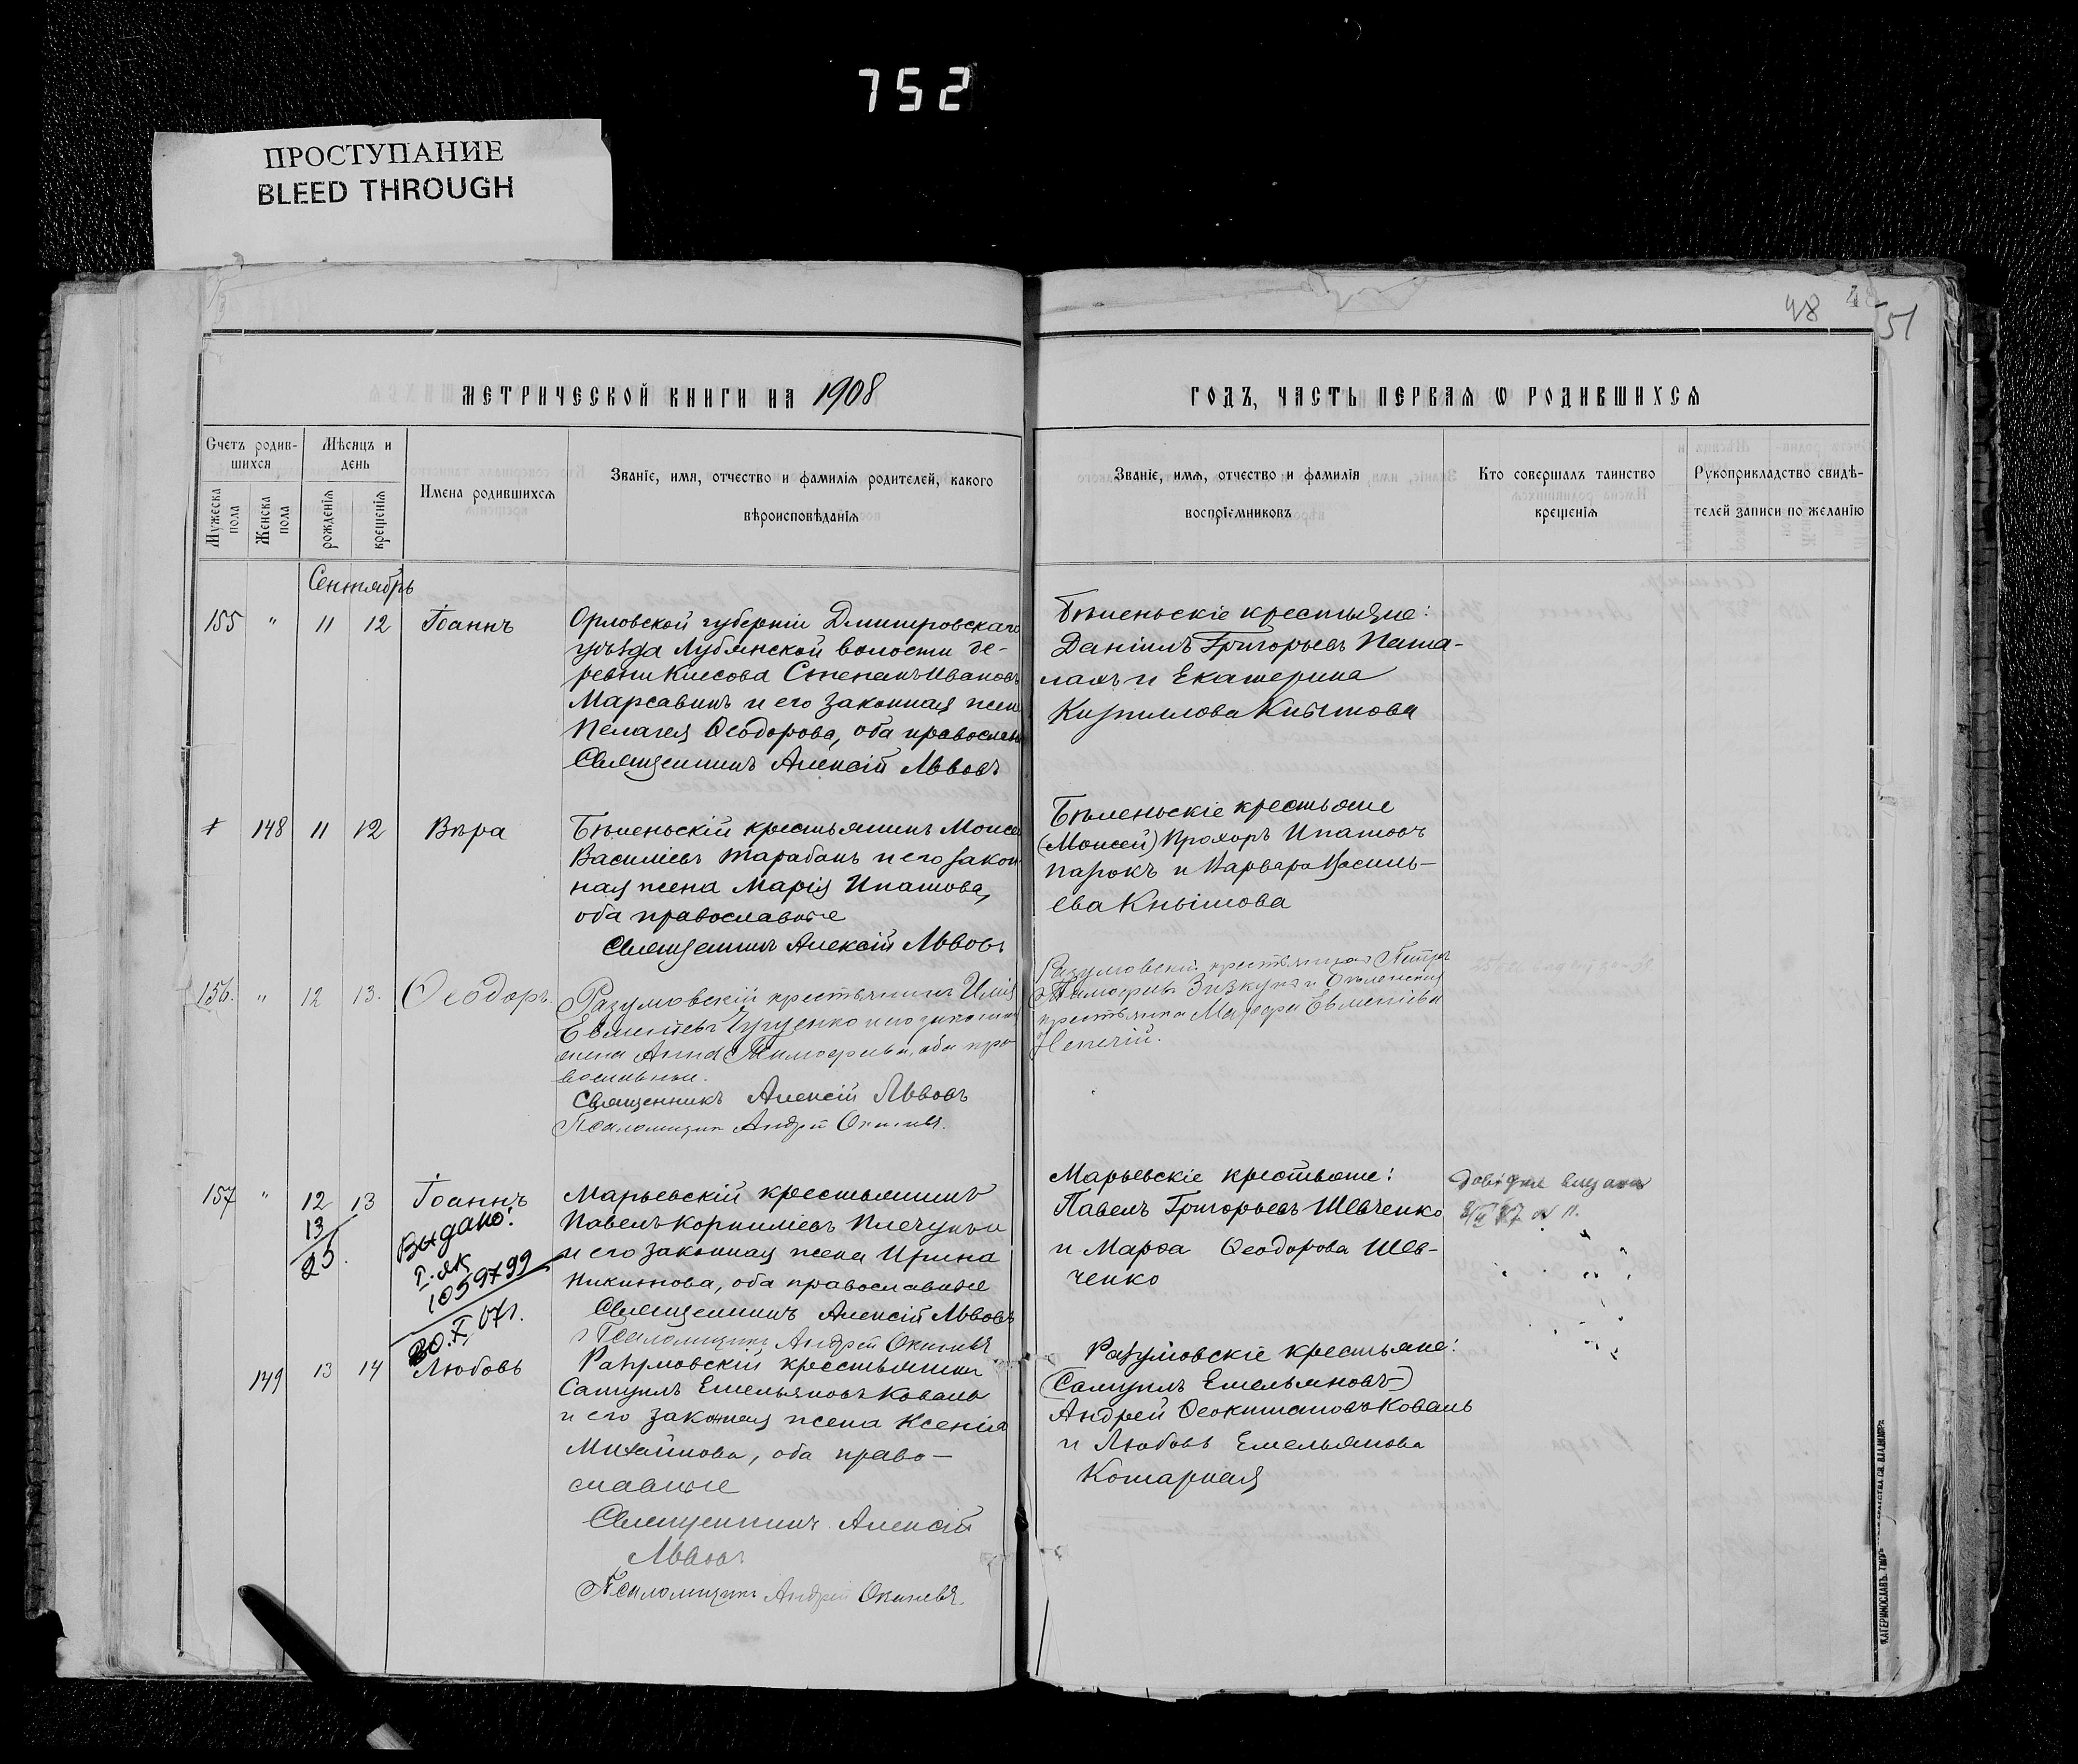 752
ПРОСТУПАНИЕ
BLEED THROUGH
48 4 51
МЕТРИЧЕСКОЙ КНИГИ НА 1908
ГОДЪ, ЧАСТЬ ПЕРВАЯ Ѡ РОДИВШИХСЯ
Счетъ родив-
шихся
Мужеска пола
Женска пола
Мѣсяцъ и
день
рожденія
крещенія
Имена родившихся
Званіе, имя, отчество и фамилія родителей, какого
вѣроисповѣданія
Званіе, имя, отчество и фамилія
воспріемниковъ
Кто совершалъ таинство
крещенія
Рукоприкладство свидѣ-
телей записи по желанію
Сентябрь
155 " 11 12 Іоаннъ
Орловской губерніи Дмитровскаго
уѣзда Лубянской волости де-
ревни Стефанъ Ивановъ
Марсавинъ и его законная жена
Пелагея Ѳеодорова, оба православн
Священникъ Алексій Львовъ
Бѣленьскіе крестьяне:
Даніилъ Григорьевъ Паша-
лахъ и Екатерина
Кириллова Кнышова
148 11 12 Вѣра
Бѣленьскій крестьянинъ Моисей
Василіевъ Тарабанъ и его закон
ная жена Марія Ипатова,
оба православные
Священникъ Алексій Львовъ
Бѣленьскіе крестьяне
(Моисей) Прохоръ Ипатовъ
и Варвара Василь-
ева Кнышова
156. " 12 13. Ѳеодоръ.
Разумовскій крестьянинъ Илія
Евменіевъ и его законная
жена Анна Тимоѳеева, оба пра
вославные.
Священникъ Алексій Львовъ
Псаломщикъ Андрей
Разумовскій крестьянинъ Петръ
Тимоѳеевъ и Бѣленская
крестьянка Марѳа Евменіева
157 " 12 13 Іоаннъ
Марьевскій крестьянинъ
Павелъ Корниліевъ
и его законная жена Ирина
Никитова, оба православные
Священникъ Алексій Львовъ
Псаломщикъ Андрей
13/25.
Видано:
І-ЯК
1059799
30.X.07г.
Марьевскіе крестьяне:
Павелъ Григорьевъ Шевченко
и Марѳа Ѳеодорова Шев-
ченко
149 13 14 Любовь
Разумовскій крестьянинъ
Самуилъ Емельяновъ Коваль
и его законная жена Ксенія
Михайлова, оба право-
славные
Священникъ Алексій
Львовъ
Псаломщикъ Андрей
Разумовскіе крестьяне:
(Самуилъ Емельяновъ)
Андрей Ѳеоктистовъ Коваль
и Любовь Емельянова
Котарная